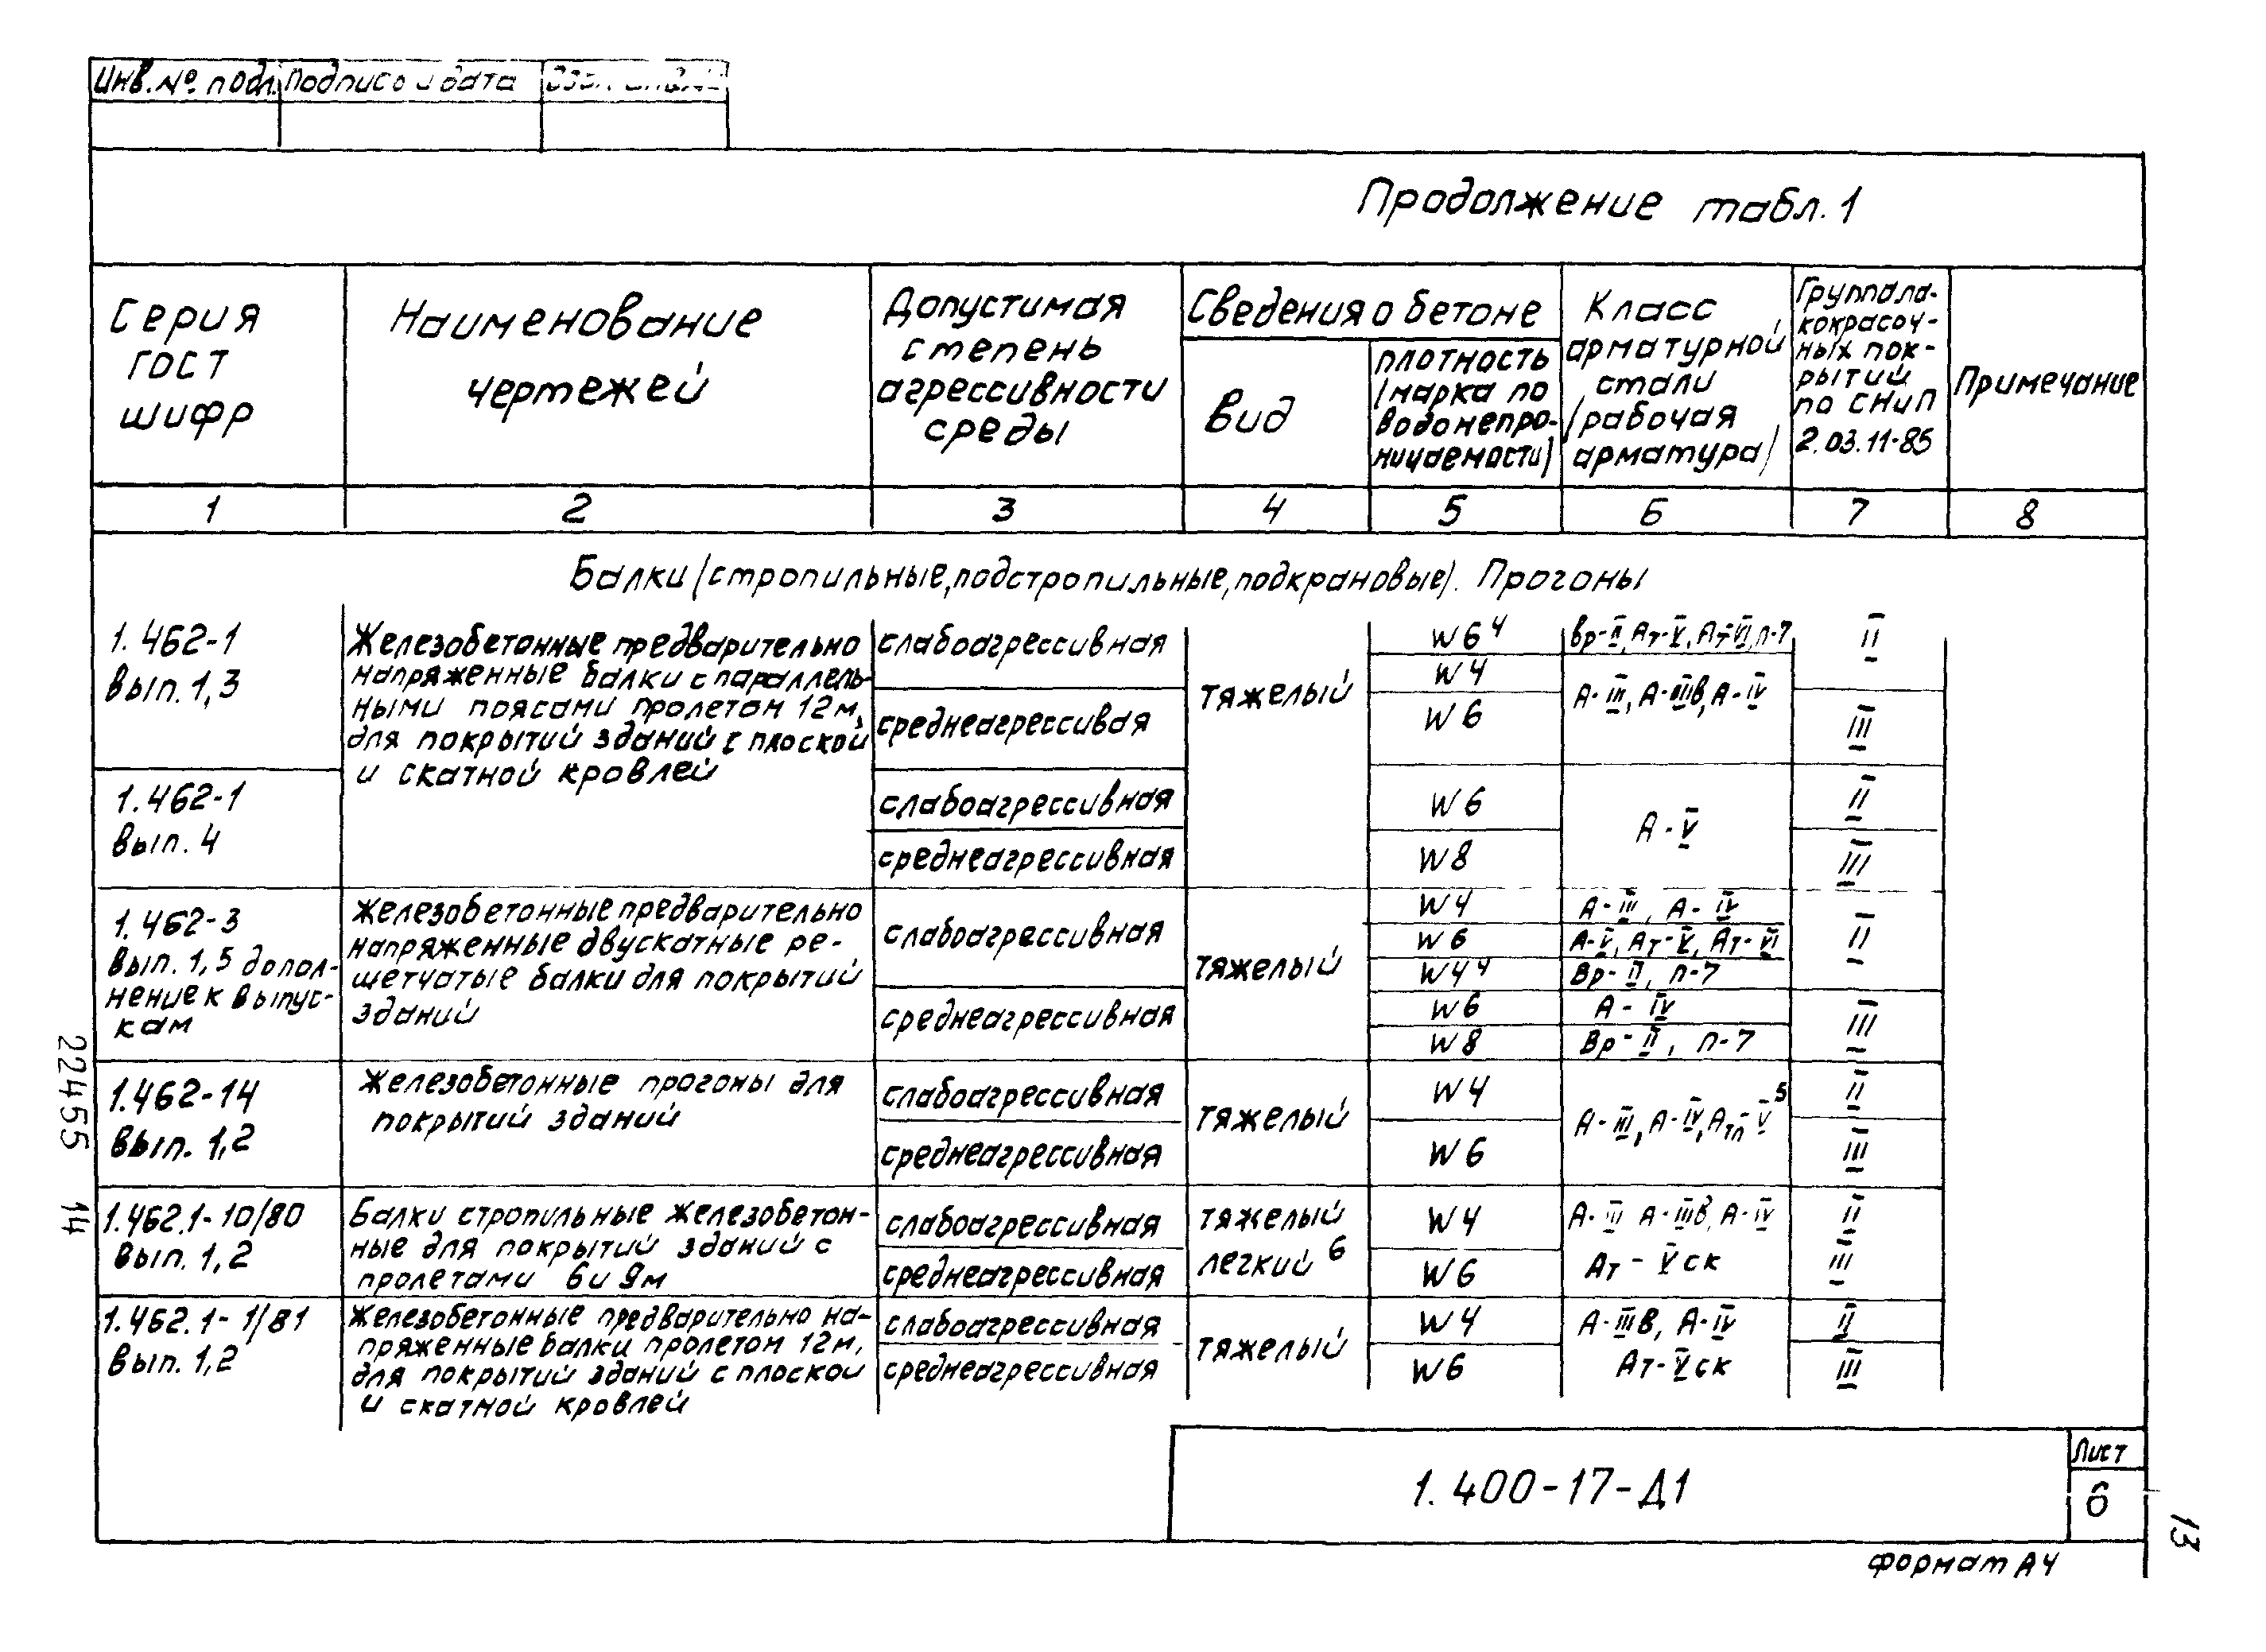 Инв. № подл. Подпись и дата
Продолжение табл. 1
Серия ГОСТ шифр
Наименование чертежей
Допустимая степень агрессивности среды
Сведения о бетоне
Вид
плотность (марка по водонепроницаемости)
Класс арматурной стали (рабочая арматура)
Группа лакокрасочных покрытий по СНиП 2.03.11-85
Примечание
1 2 3 4 5 6 7 8
Балки (стропильные, подстропильные, подкрановые). Прогоны
1.462-1
вып. 1,3
Железобетонные предварительно
напряженные балки с параллель-
ными поясами пролетом 12м,
для покрытий зданий с плоской
и скатной кровлей
слабоагрессивная
среднеагрессивая
тяжелый
W6⁴
W4
W6
Вр-II, Ат-V, Ат-VI, П-7
А-III, А-IIIв, А-IV
II
III
1.462-1
вып. 4
слабоагрессивная
среднеагрессивная
W6
W8
А-V
II
III
1.462-3
вып. 1,5 допол-
нение к выпус-
кам
Железобетонные предварительно
напряженные двускатные ре-
шетчатые балки для покрытий
зданий
слабоагрессивная
среднеагрессивная
тяжелый
W4 А-III, А-IV
W6 А-V, Ат-V, Ат-VI
W4⁴ Вр-II, П-7
W6 А-IV
W8 Вр-II, П-7
II
III
1.462-14
вып. 1,2
Железобетонные прогоны для
покрытий зданий
слабоагрессивная
среднеагрессивная
тяжелый
W4
W6
А-III, А-IV, Атп-V⁵
II
III
1.462.1-10/80
вып. 1,2
Балки стропильные железобетон-
ные для покрытий зданий с
пролетами 6 и 9м
слабоагрессивная
среднеагрессивная
тяжелый
легкий⁶
W4
W6
А-III А-IIIв, А-IV
Ат-Vск
II
III
1.462.1-1/81
вып. 1,2
Железобетонные предварительно на-
пряженные балки пролетом 12м,
для покрытий зданий с плоской
и скатной кровлей
слабоагрессивная
среднеагрессивная
тяжелый
W4
W6
А-IIIв, А-IV
Ат-Vск
II
III
22455 14
1.400-17-Д1
Лист
6
13
формат А4